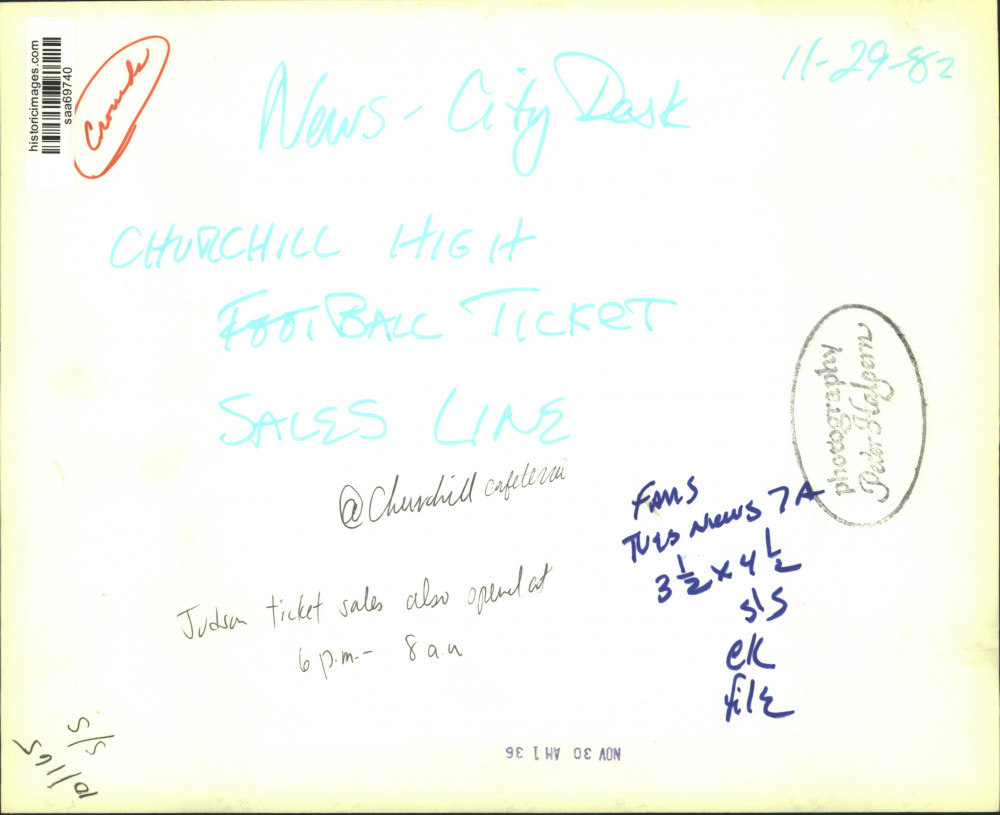 historicimages.com
saa69740
Crowds
11-29-82
News - City Desk
CHURCHILL HIGH
FOOTBALL TICKET
SALES LINE
@ Churchill cafeteria
Judson ticket sales also opened at
6 p.m. - 8 a.m
photography
Peter Halpern
FANS
TUES NEWS 7A
3 1/2 x 4 1/2
S/S
CK
file
NOV 30 AM 1 36
S/S